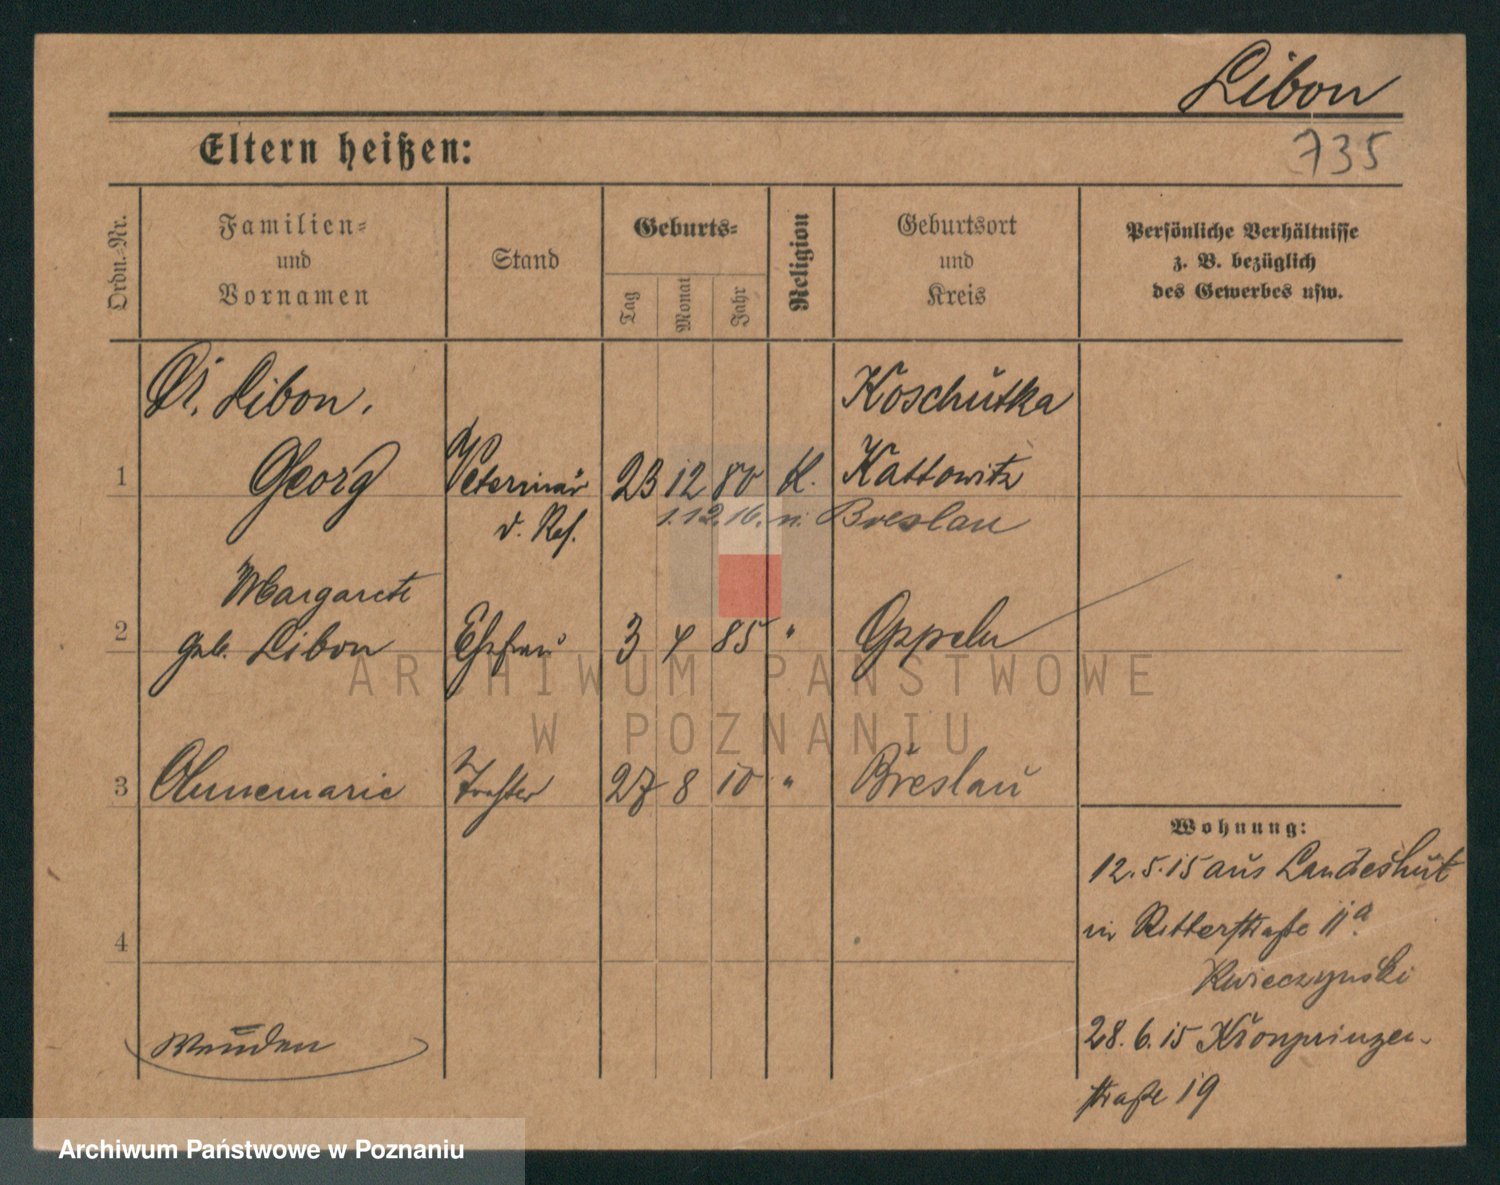 Libon
735
Eltern heißen:
Ordn.-Nr.
Familien-
und
Vornamen
Stand
Geburts-
Tag
Monat
Jahr
Religion
Geburtsort
und
Kreis
Persönliche Verhältnisse
z. B. bezüglich
des Gewerbes usw.
Dr. Libon,
Koschütka
1 Georg Veterinär 23 12 80 k. Kattowitz
d. Res. 1.12.16. n. Breslau
Margarete
2 geb. Libon Ehefrau 3 4 85 " Oppeln
3 Annemarie Tochter 27 8 10 " Breslau
Wohnung:
12.5.15 aus Landeshut
in Ritterstraße 11a
4
Kwieczynski
28.6.15 Kronprinzen-
straße 19
Wenden
ARCHIWUM PAŃSTWOWE
W POZNANIU
Archiwum Państwowe w Poznaniu